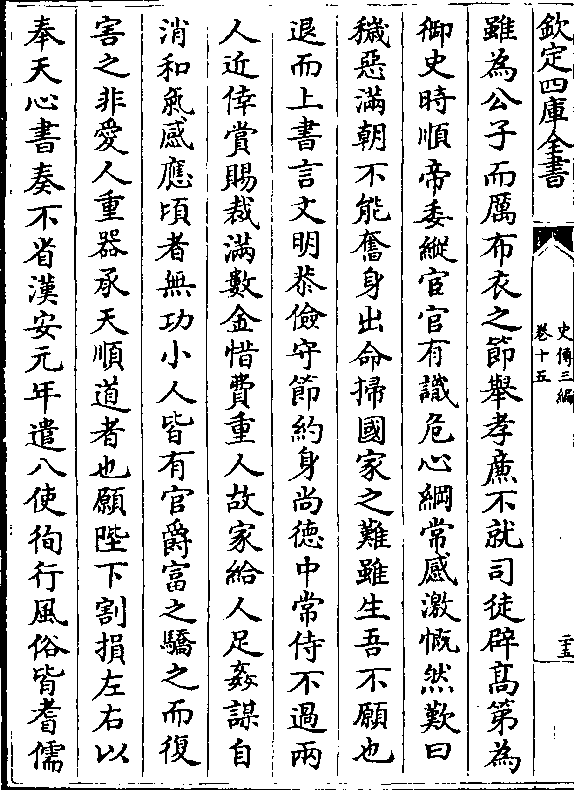 欽定四庫全書
史傳三編
卷十五
二十五
雖為公子而厲布衣之節舉孝亷不就司徒辟髙第為
御史時順帝委縱宦官有識危心綱常感激慨然歎曰
穢惡滿朝不能奮身出命掃國家之難雖生吾不願也
退而上書言文明恭儉守節約身尚徳中常侍不過兩
人近倖賞賜裁滿數金惜費重人故家給人足姦謀自
消和氣感應頃者無功小人皆有官爵富之驕之而復
害之非愛人重器承天順道者也願陛下割損左右以
奉天心書奏不省漢安元年遣八使徇行風俗皆耆儒